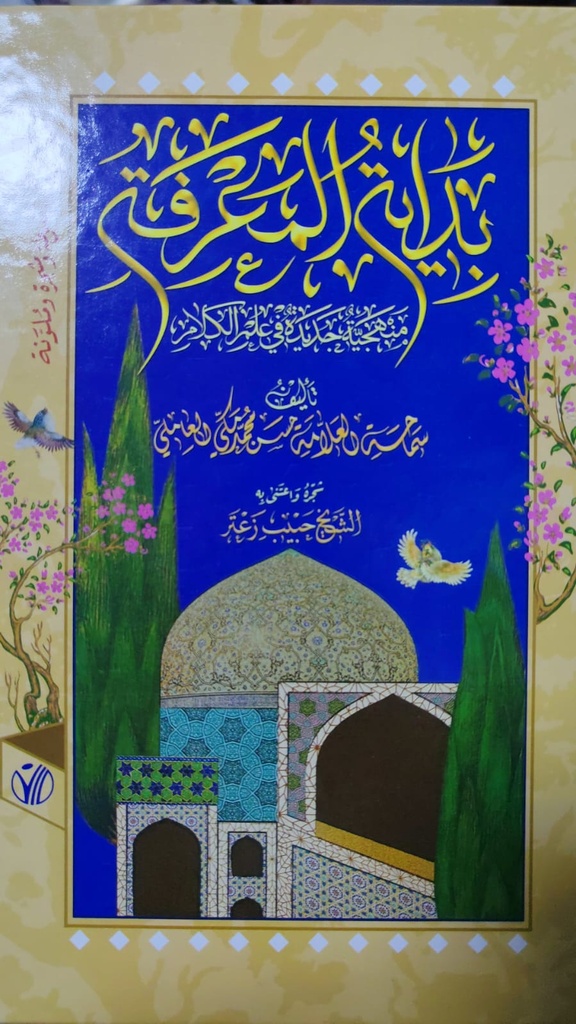 بداية المعرفة
منهجية جديدة في علم الكلام
تأليف
سماحة العلامة حسن محمد مكي العاملي
شجره واعتنى به
الشيخ حبيب زعتر